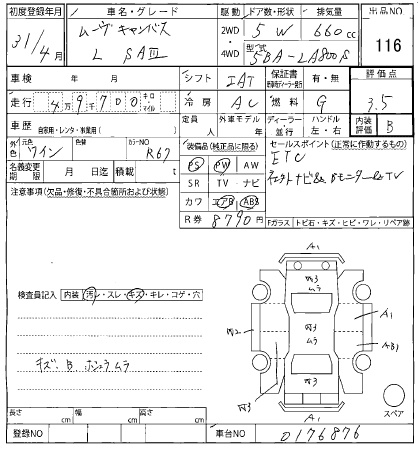 初度登録年月 車名・グレード 駆動 ドア数・形状 排気量 出品NO
31/4月 ムーヴ キャンバス 2WD 5W 660cc 116
L SAⅢ 4WD 型式 5BA-LA800S
車検 年 月 シフト IAT 保証書 有・無 評価点
走行 4万9千700 キロ・マイル 冷房 AC 燃料 G 3.5
車歴 自家用・レンタ・事業用( ) 定員 人 外車モデル 年 ディーラー・並行 ハンドル 左・右 内装評価 B
外色 元色 ワイン 色替 カラーNO R67 装備品(純正品に限る) セールスポイント(正常に作動するもの)
PS PW AW ETC
名義変更期限 月 日迄 積載 t SR TV ナビ TV
注意事項(欠品・修復・不具合箇所および状態) カワ エアB ABS
R券 8790円 Fガラス トビ石・キズ・ヒビ・ワレ・リペア跡
A1
W3
ムラ
検査員記入 内装 汚レ・スレ・キズ・キレ・コゲ・穴
A1
W2 W3
ムラ
AB1
キズ、B ホシュウムラ
W3
W3
A1
スペア
長さ cm 幅 cm 高さ cm
登録NO 車台NO 0176876